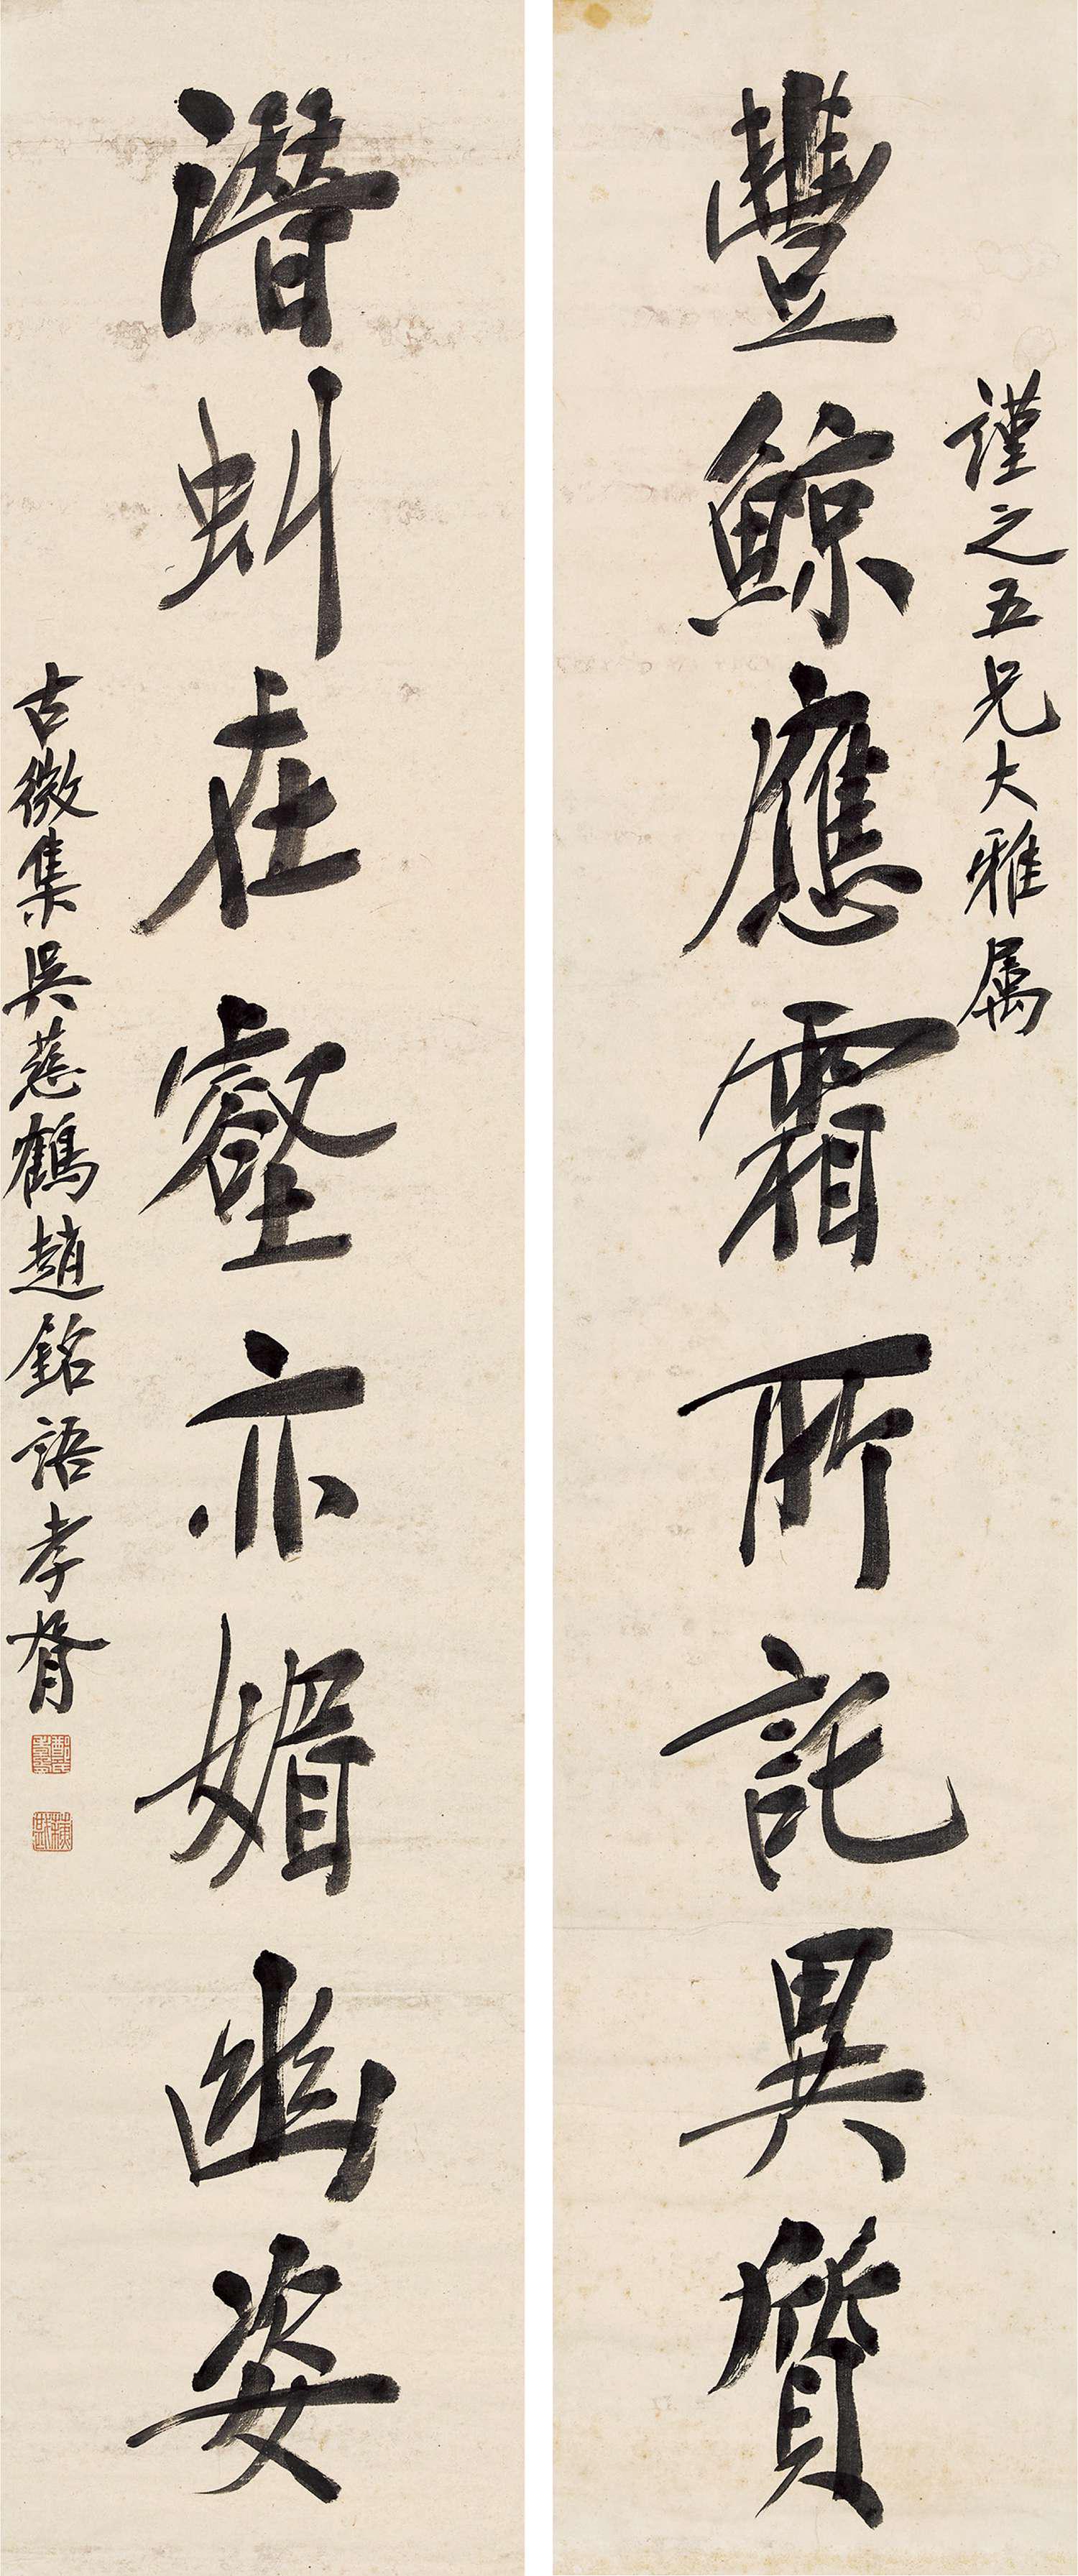 謹之五兄大雅属
豐鯨應霜所託異質
潛虯在壑亦媚幽姿
古微集吳慈鶴趙銘語孝胥